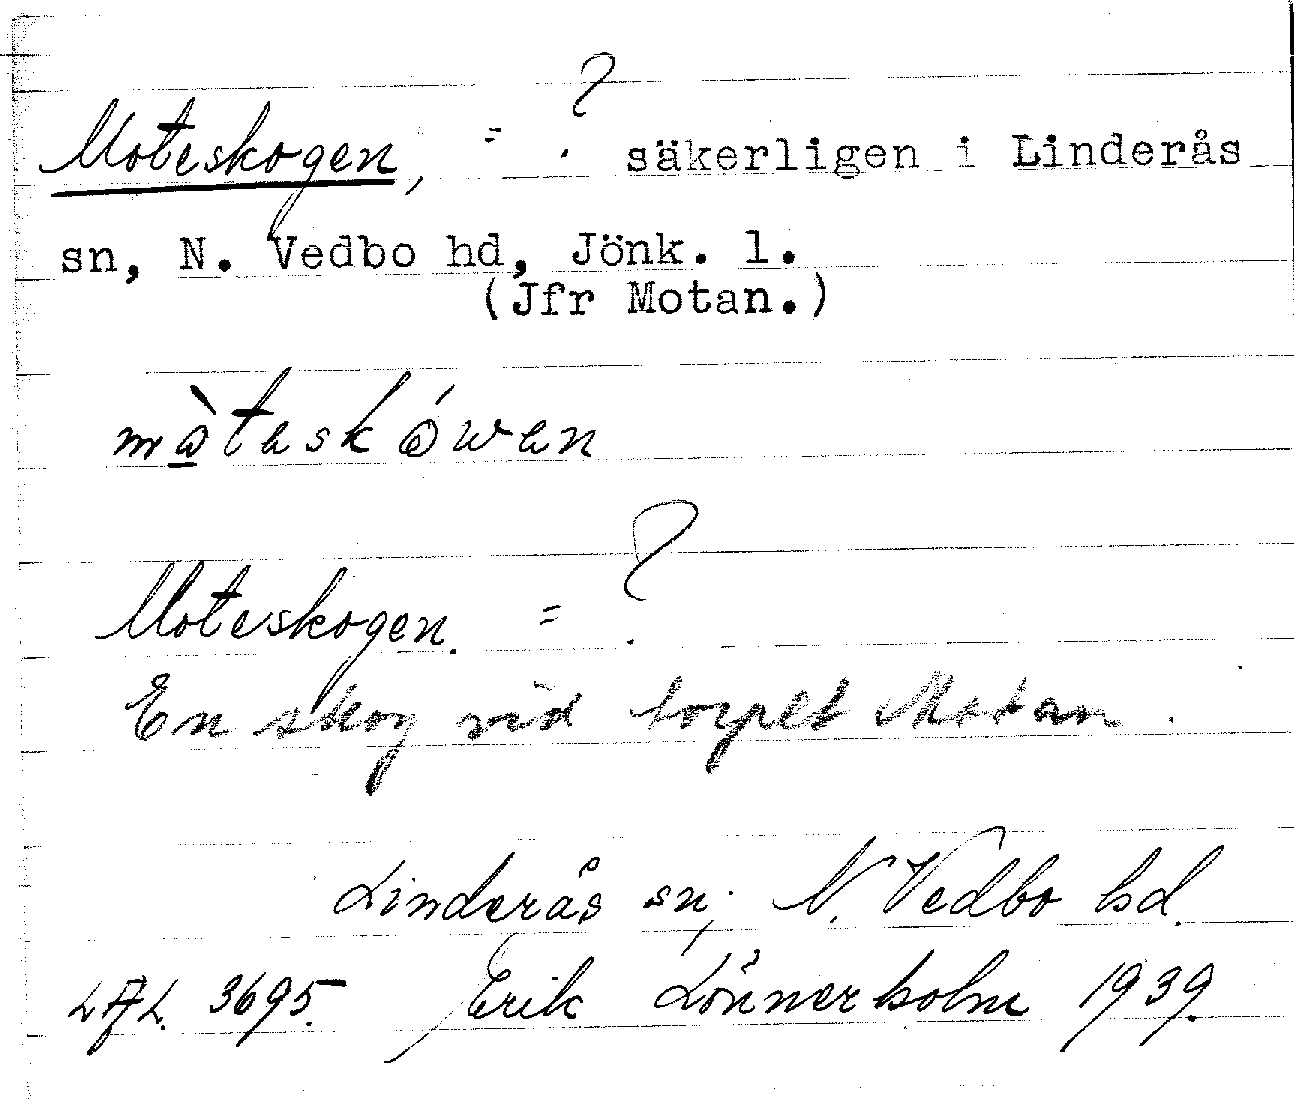 Moteskogen, = ? säkerligen i Linderås
sn, N. Vedbo hd, Jönk. l.
(Jfr Motan.)
Moteskogen. = ?
En skog vid torpet Motan.
Linderås sn; N. Vedbo hd.
LAL. 3695. Erik Lönnerholm 1939.